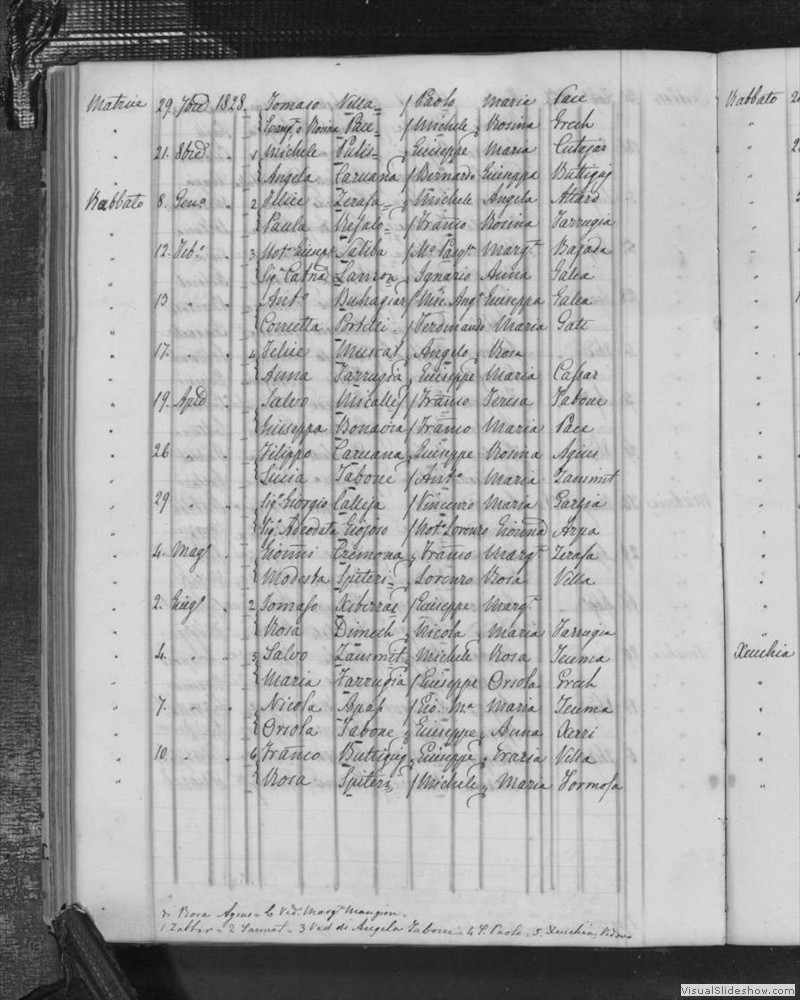 Matrice 29. 7bre 1828. Tomaso Villa / Paolo Maria Pace
Rosina Pace / Michele Rosina Grech
21. 8bre 1 Michele Pulis Giuseppe Maria Cutajar
Angela Caruana / Bernardo Giuseppa Buttigieg
Rabbato 8. Genº 2 Felice Zerafa Michele Angela Attard
Paula Refalo / Franco Rosina Farrugia
12. Febº 3 Notº Giuseppe Saliba / Mº Margª Bajada
Sigª Catnª Zammit Ignazio Anna Galea
13 Antº Buhagiar / Angº Giuseppa Galea
Concetta Portelli / Ferdinando Maria Gatt
17. 4 Felice Muscat Angelo Rosa
Anna Farrugia Giuseppe Maria Cassar
19. Aple Salvo Micallef / Franco Teresa Tabone
Giuseppa Bonavia / Franco Maria Pace
26 Filippo Caruana Giuseppe Rosina Agius
Lucia Tabone / Antº Maria Zammit
29 Sigº Giorgio Calleja / Vincenzo Maria Garsia
Sigª Adeodata Giojoso / Notº Lorenzo Arpa
4. Magº Cremona Franco Margª Zerafa
Modesta Spiteri Lorenzo Rosa Villa
2. Giugº 2 Tomaso Xiberras / Giuseppe Margª
Rosa Dimech Nicola Maria Farrugia
4. 5 Salvo Zammit Michele Rosa Teuma
Maria Farrugia / Giuseppe Orsola Grech
7. Nicola Apap / Gio. Mª Maria Teuma
Orsola Tabone Giuseppe Anna Xerri
10 6 Franco Buttigieg Giuseppe Grazia Villa
Rosa Spiteri / Michele Maria Formosa
di Rosa Agius - 6 Vedº Margª Mangion.
1 Zabbar - 2 Sannat - 3 Ved di Angela Tabone - 4 S. Paolo - 5. Xeuchia, Vedovo
Rabbato
Xeuchia
VisualSlideshow.com